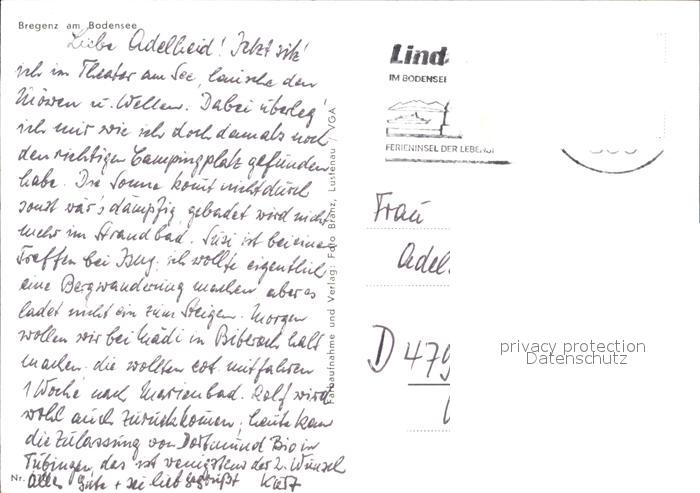 Bregenz am Bodensee
Liebe Adelheid! Jetzt sitz'
ich im Theater am See, lausche den
Möwen u. Wellen. Dabei überleg
ich mir wie ich doch damals noch
den richtigen Campingplatz gefunden
habe. Die Sonne komt nicht durch
sonst wär's dämpfig, gebadet wird nicht
mehr im Strandbad. Susi ist bei einem
Treffen bei ich wollte eigentlich
eine Bergwanderung machen aber es
ladet nicht ein zum Steigen. Morgen
wollen wir bei Mädi in Biberach halt
machen. die wollten evt. mitfahren
1 Woche nach Marienbad. Rolf wird
wohl auch zurückkomen, heute kam
die Zulassung von Dortmund Bio in
Tübingen, das ist wenigstens der 2. Wunsch
Nr. alles Gute + sei lieb gegrüßt
Farbaufnahme und Verlag: Foto Branz, Lustenau / VGA
Lind
IM BODENSEE
FERIENINSEL DER LEBENS
Frau
Adel.
D 479
privacy protection
Datenschutz